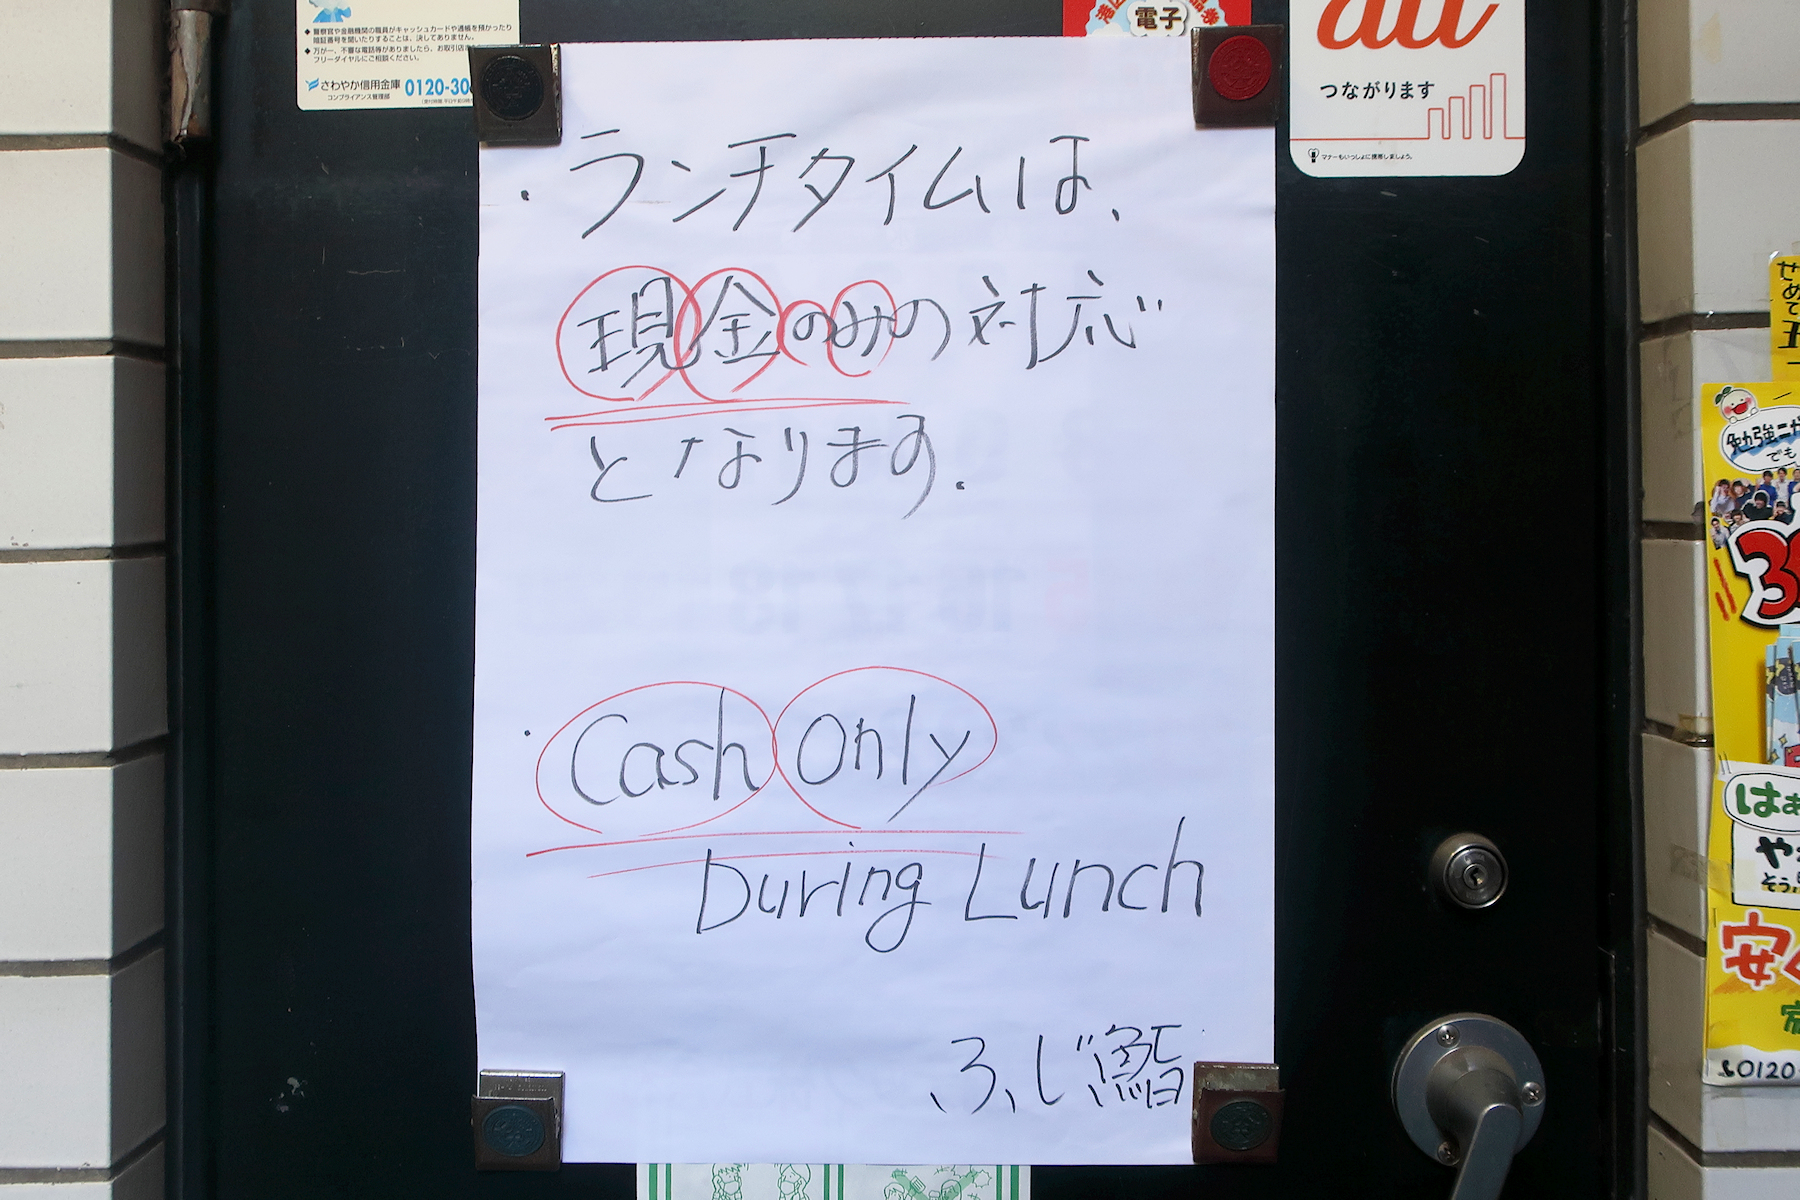 ◆警察官や金融機関の職員がキャッシュカードや通帳を預かったり
暗証番号を聞いたりすることは、決してありません。
◆万が一、不審な電話等がありましたら、お取引店
フリーダイヤルにご相談ください。
さわやか信用金庫 0120-30
コンプライアンス管理部
電子
au
つながります
マナーもいっしょに携帯しましょう。
・ランチタイムは、
現金のみの対応
となります.
・Cash Only
During Lunch
ふじ鮨
せめて
勉強ニガ
でも
はあ
や
そう
安く
0120-